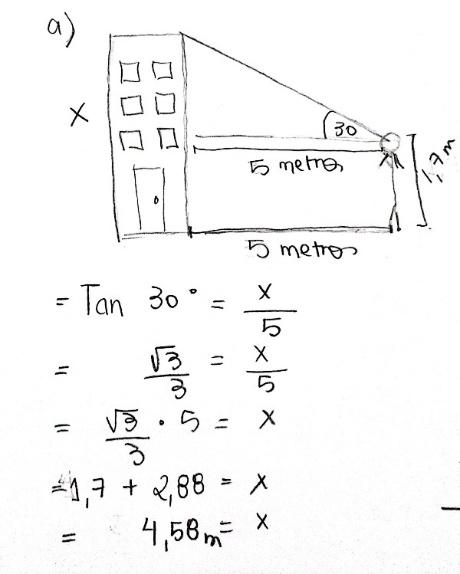 a)
X
30
5 metros
1,7 m
5 metros
= Tan 30° = x/5
= √3/3 = x/5
= √3/3 · 5 = x
= 1,7 + 2,88 = x
= 4,58 m = x